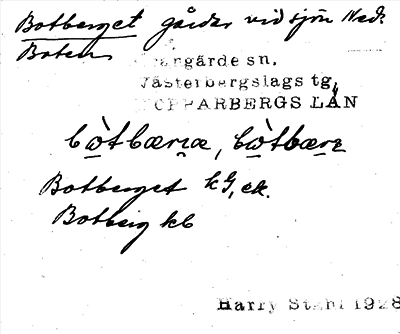 Botberget gårdar vid sjön Ned.
Boten
Grangärde sn.
Västerbergslags tg,
KOPPARBERGS LÄN
Botberget kg, ek.
Botberg kb
Harry Ståhl 1928